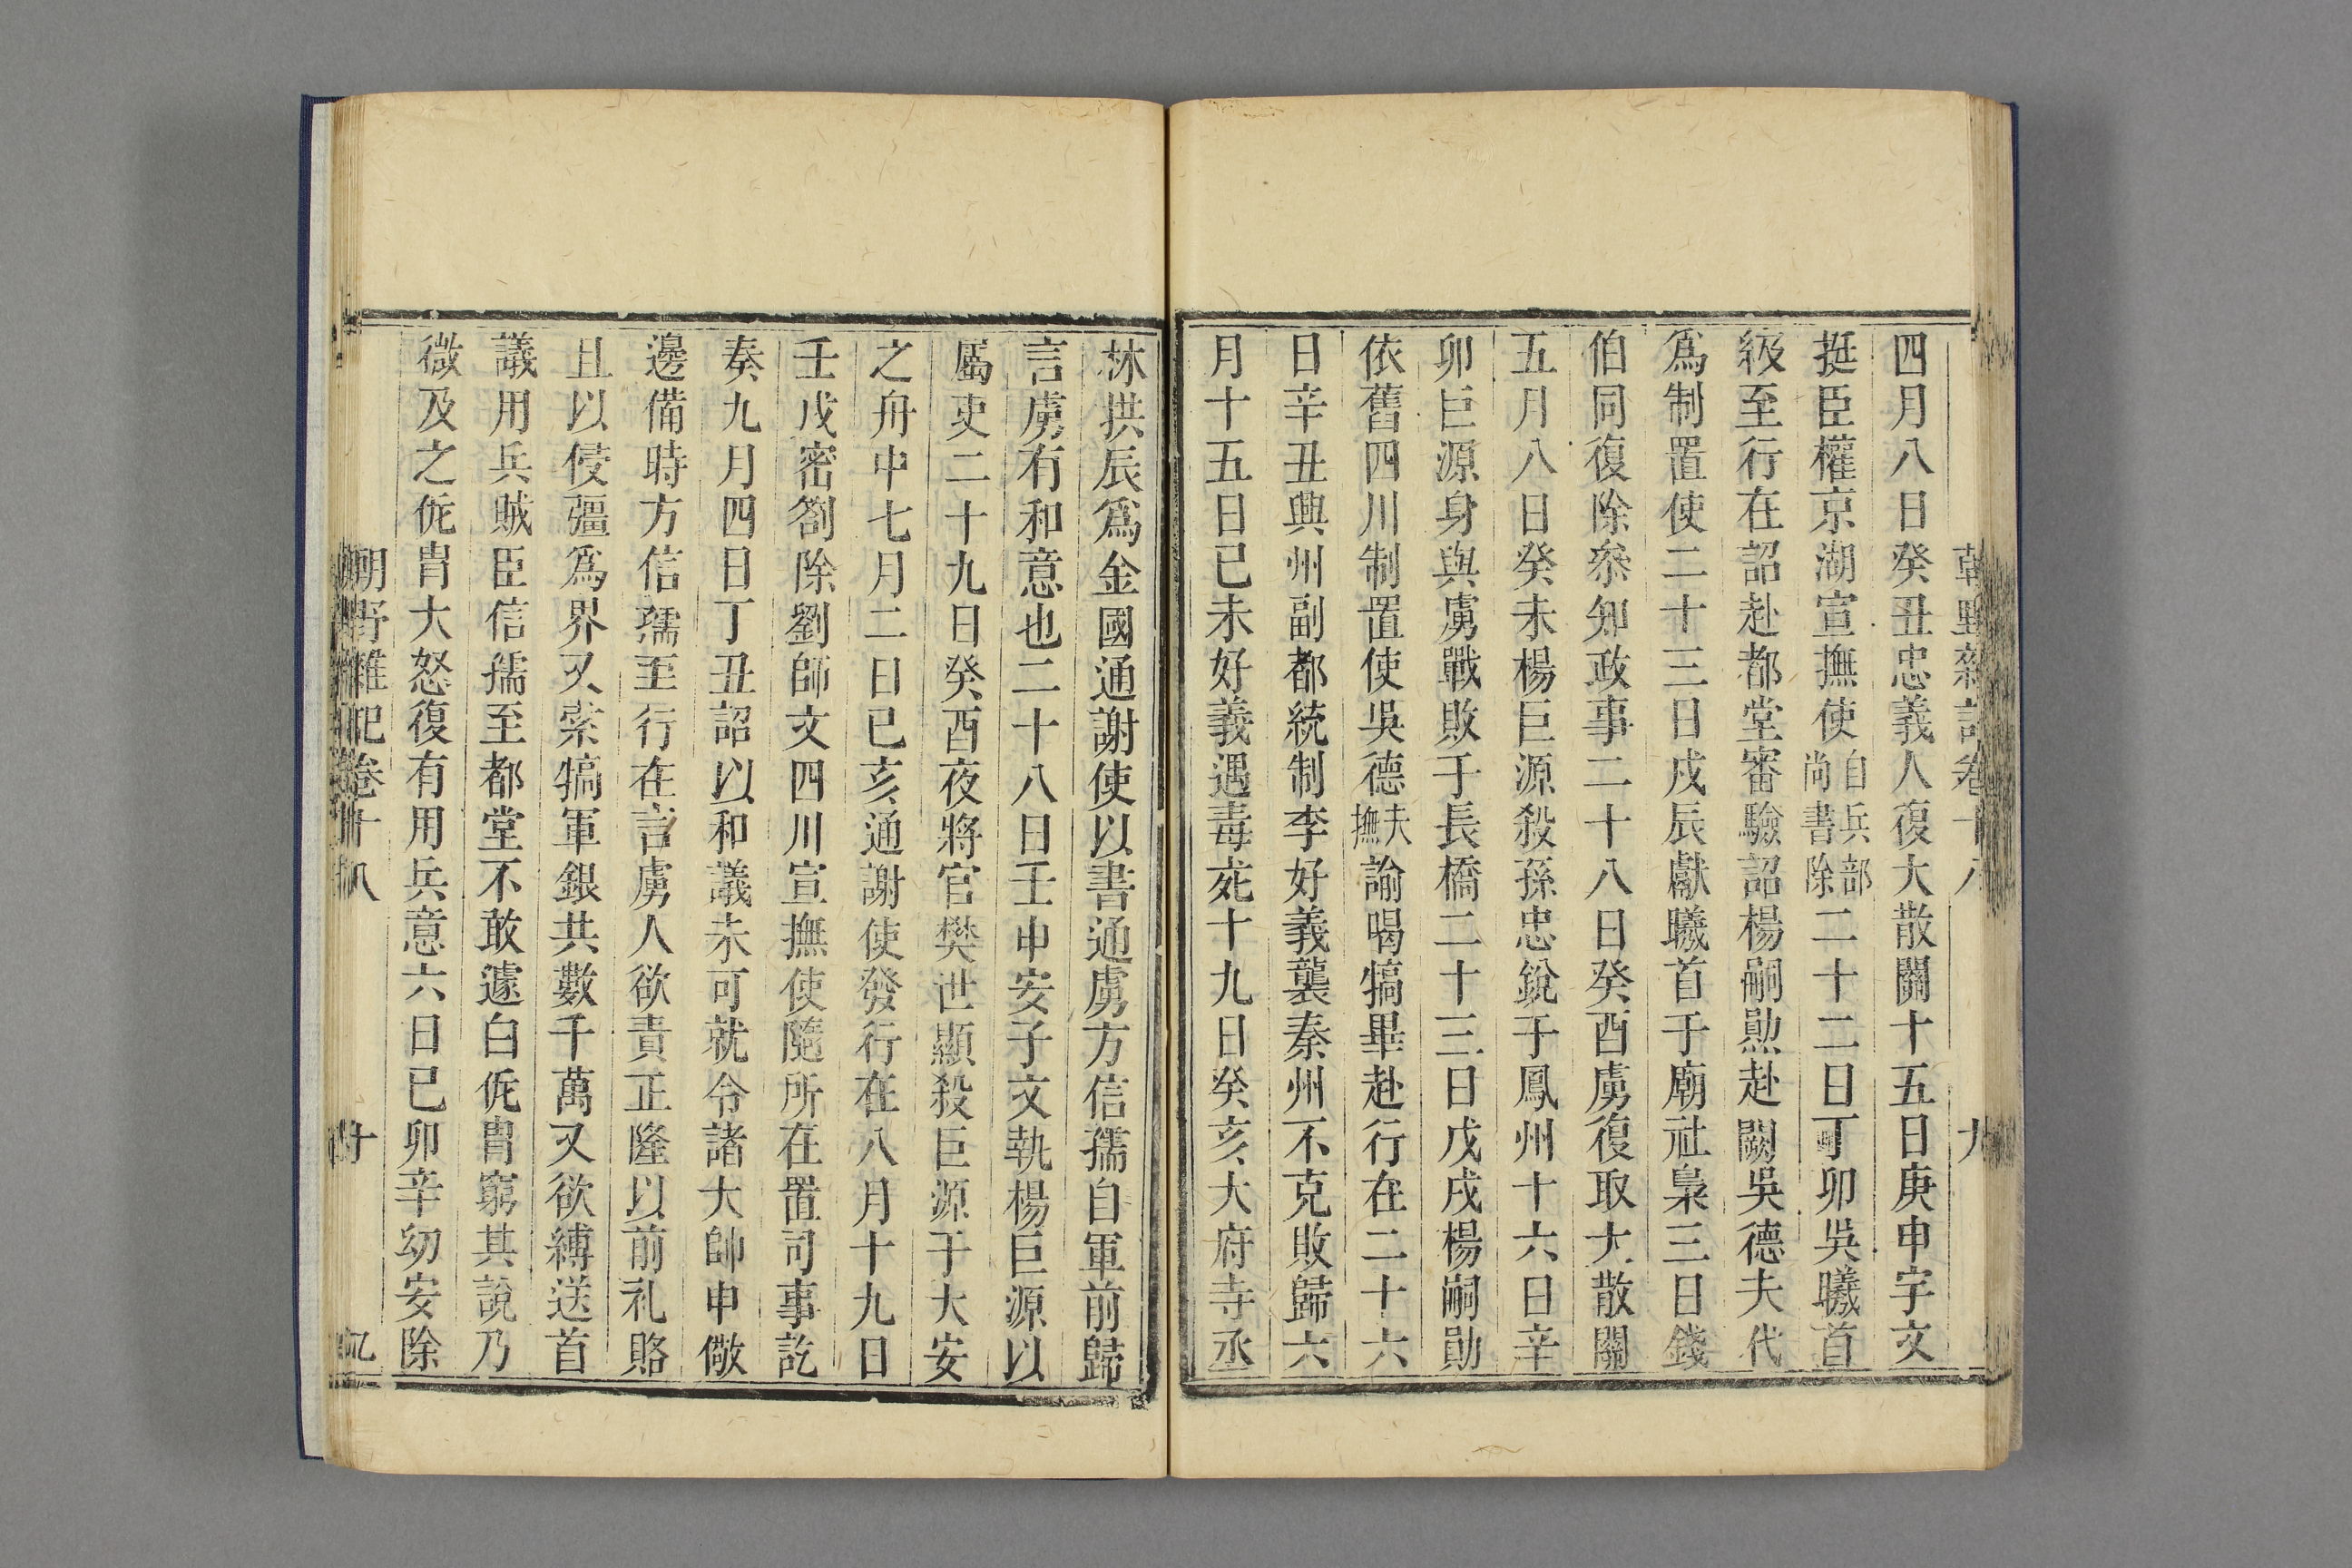 四月八日癸丑忠義人復大散關十五日庚申宇文
挺臣權京湖宣撫使自兵部尚書除二十二日丁卯吳曦首
級至行在詔赴都堂審驗詔楊嗣勲赴闕吳德夫代
爲制置使二十三日戍辰獻曦首于廟社梟三日錢
伯同復除叅知政事二十八日癸酉虜復取大散關
五月八日癸未楊巨源殺孫忠銳于鳳州十六日辛
卯巨源身與虜戰敗于長橋二十三日戊戌楊嗣勛
依舊四川制置使吳德夫撫諭喝犒畢赴行在二十六
日辛丑興州副都統制李好義襲秦州不克敗歸六
月十五日已未好義遇毒死十九日癸亥大府寺丞
林拱辰爲金國通謝使以書通虜方信孺自軍前歸
言虜有和意也二十八日壬申安子文執楊巨源以
屬吏二十九日癸酉夜將官樊世顯殺巨源于大安
之舟中七月二日已亥通謝使發行在八月十九日
壬戌密劄除劉師文四川宣撫使隨所在置司事訖
奏九月四日丁丑詔以和議未可就令諸大帥申儆
邊備時方信孺至行在言虜人欲責正隆以前礼賂
且以侵疆爲界又索犒軍銀共數千萬又欲縛送首
議用兵賊臣信孺至都堂不敢遽白侂冑窮其說乃
微及之侂冑大怒復有用兵意六日已卯辛幼安除
朝野雜記卷十八
十